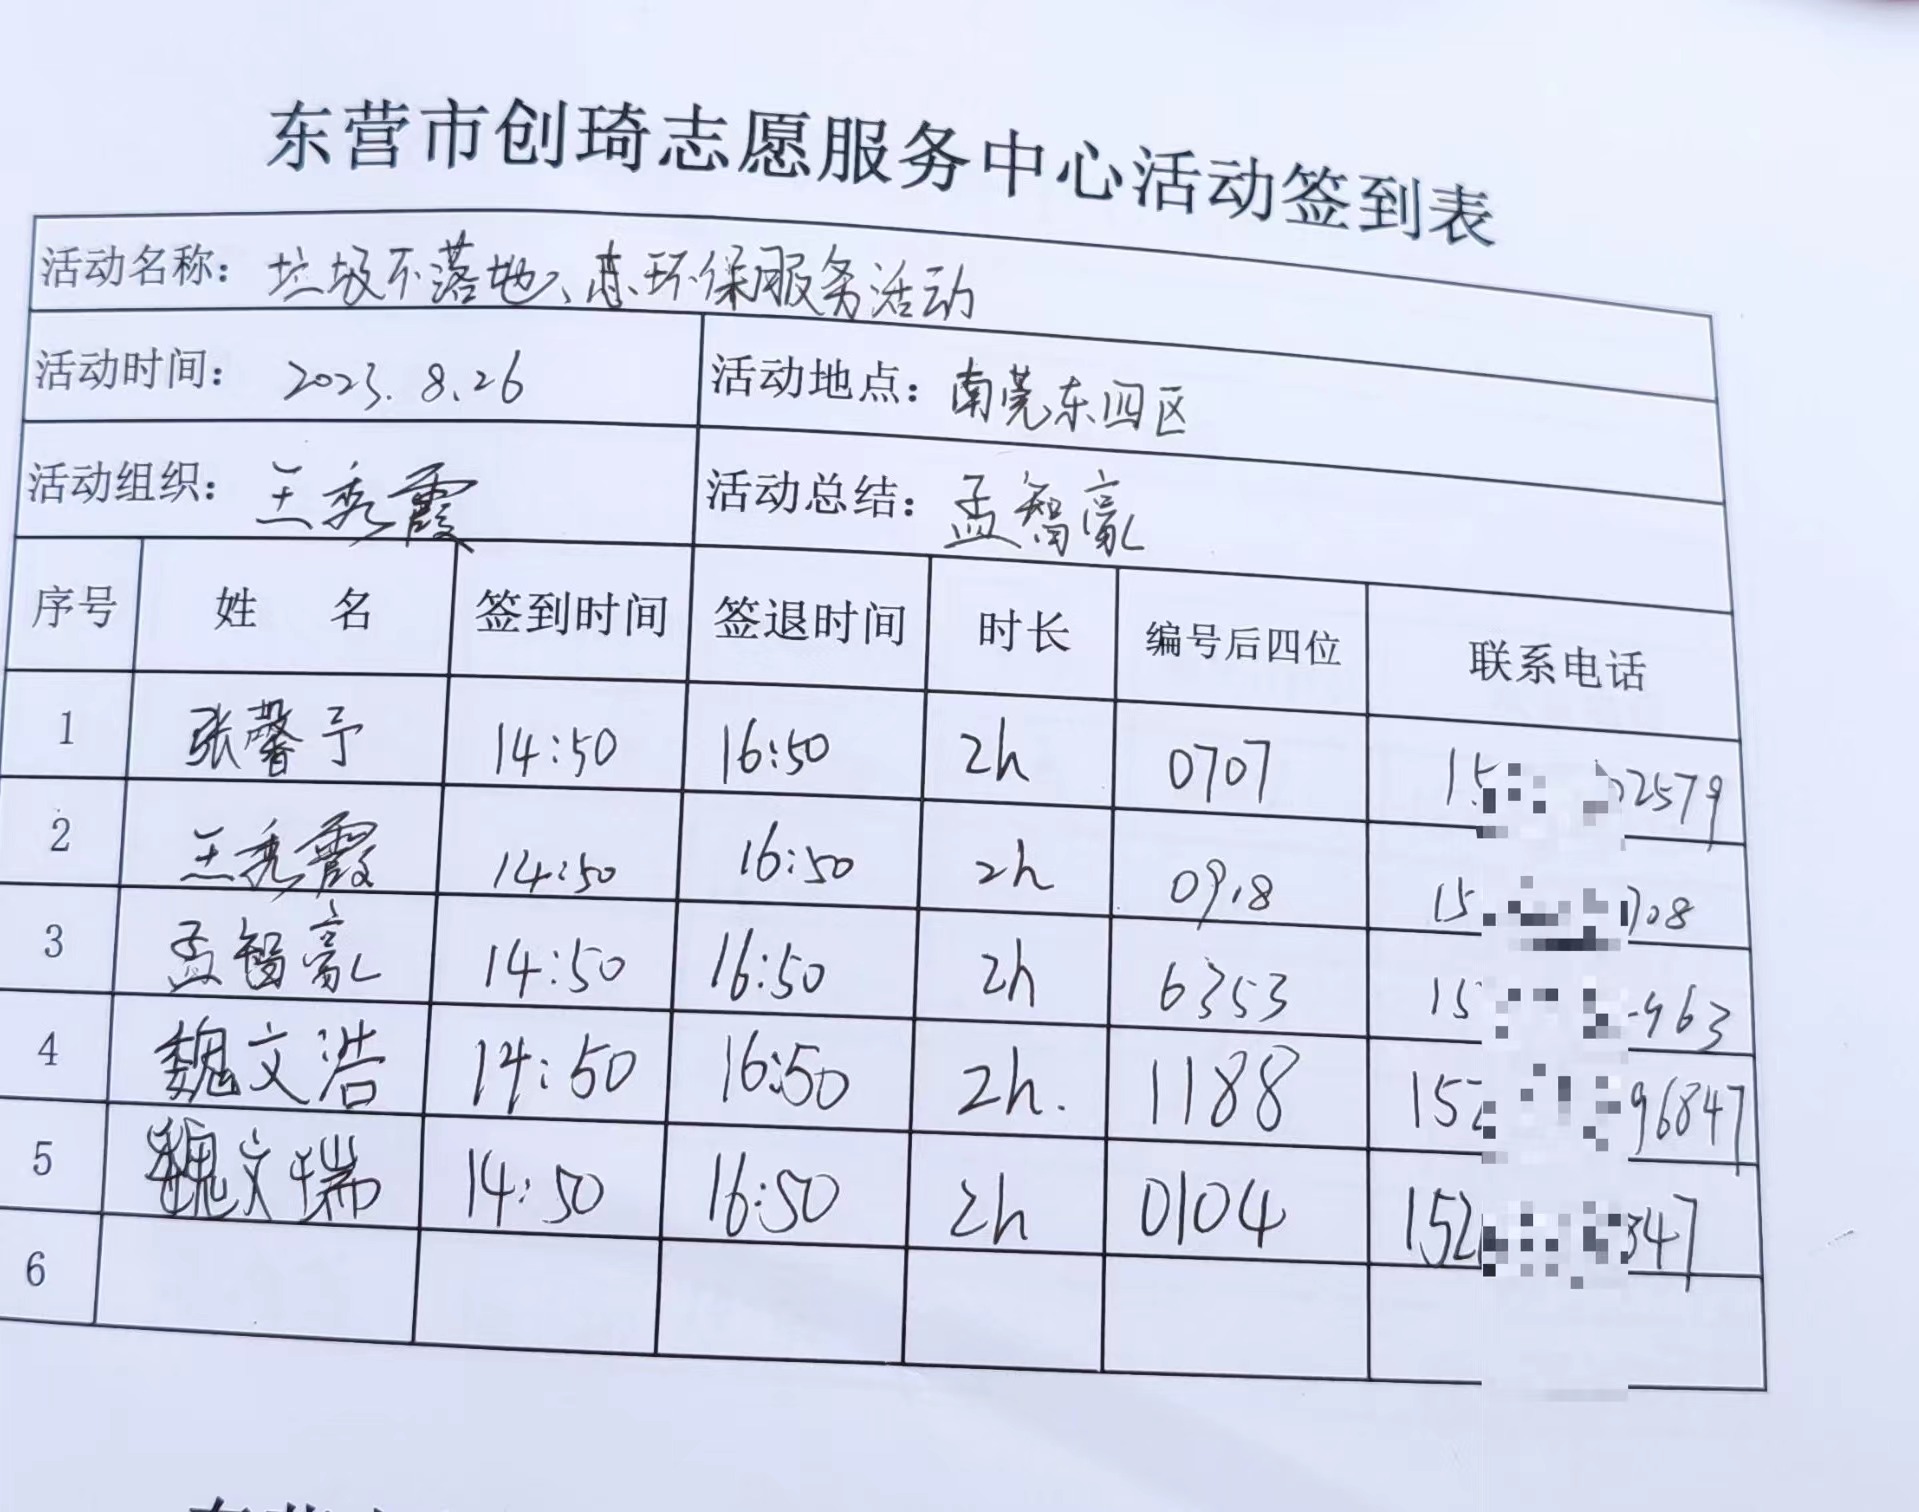 东营市创琦志愿服务中心活动签到表
活动名称：垃圾不落地、志环保服务活动
活动时间：2023.8.26 活动地点：南莞东四区
活动组织：王秀霞 活动总结：孟智氤
序号 姓名 签到时间 签退时间 时长 编号后四位 联系电话
1 张馨予 14:50 16:50 2h 0707 15 2579
2 王秀霞 14:50 16:50 2h 0918 15 708
3 孟智 14:50 16:50 2h 6353 15 963
4 魏文浩 14:50 16:50 2h. 1188 152 96847
5 魏文瑞 14:50 16:50 2h 0104 152 347
6